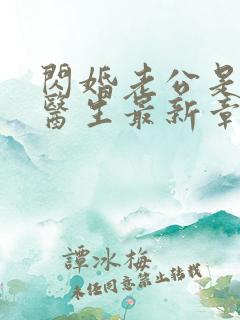 閃婚老公是
醫生最新章
譚冰梅
未經同意禁止轉載